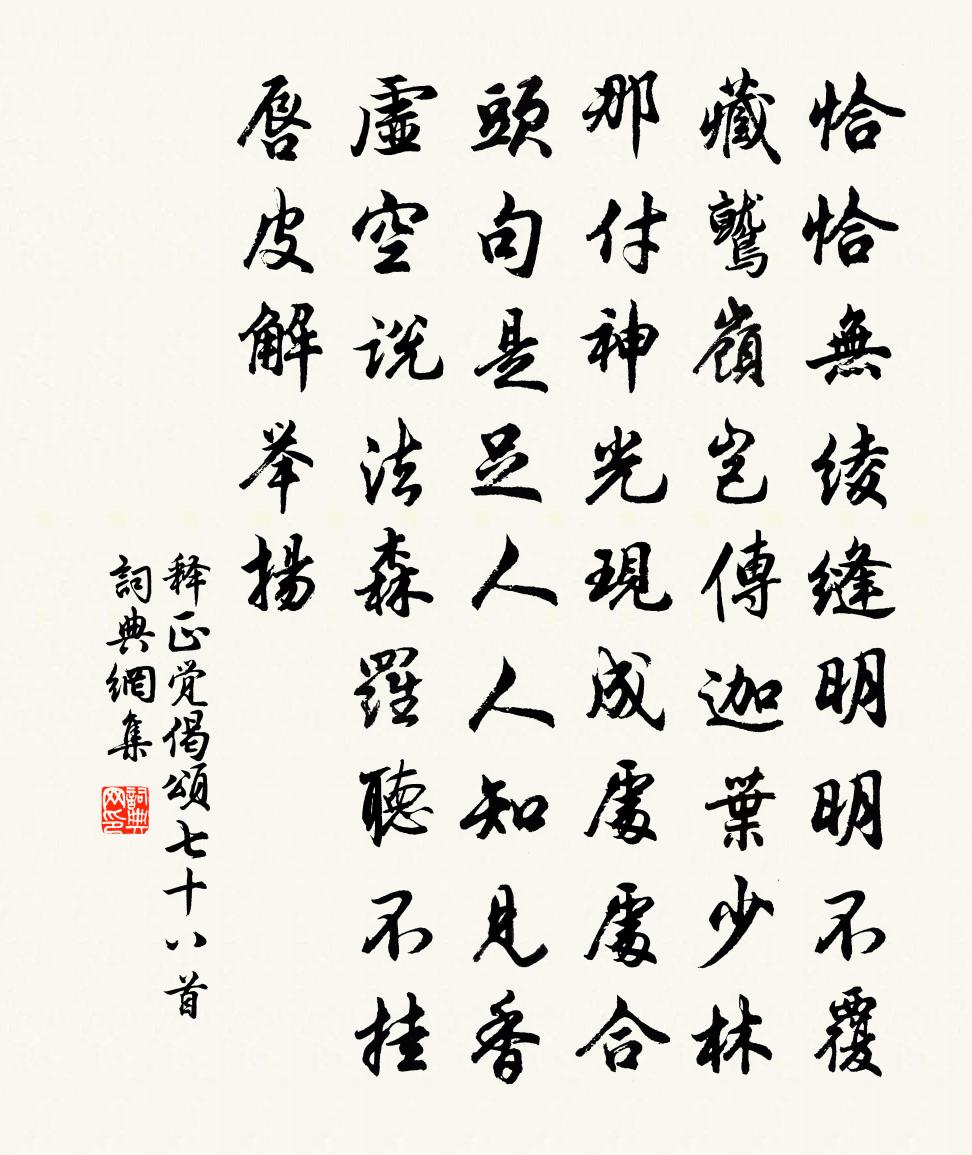 恰恰無綾縫明明不覆
藏鷲嶺豈傳迦葉少林
那付神光現成處處合
頭句是足人人知見香
虛空説法森羅聽不挂
唇皮解举揚
释正觉偈頌七十八首
詞典網集
詞典网印